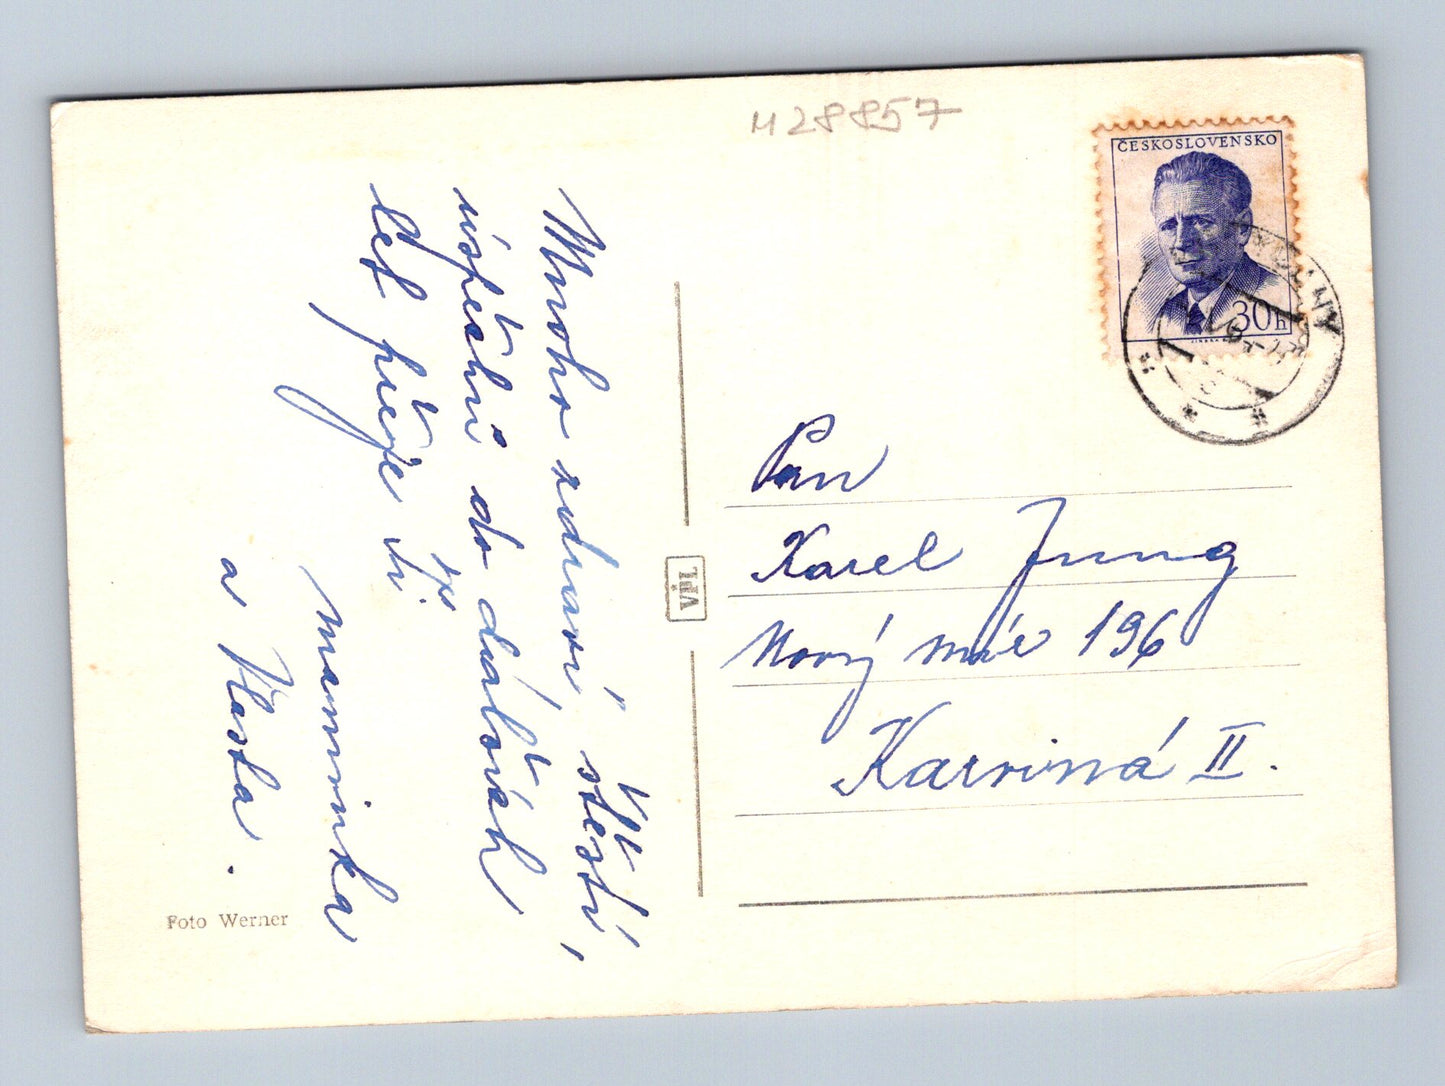 M 28857
ČESKOSLOVENSKO
30h
Mnoho zdraví, štěstí,
úspěchů do dalších
let přeje Ti
maminka
a Vlasta.
VPL
Pan
Karel Jung
Nový mír 196
Karviná II.
Foto Werner